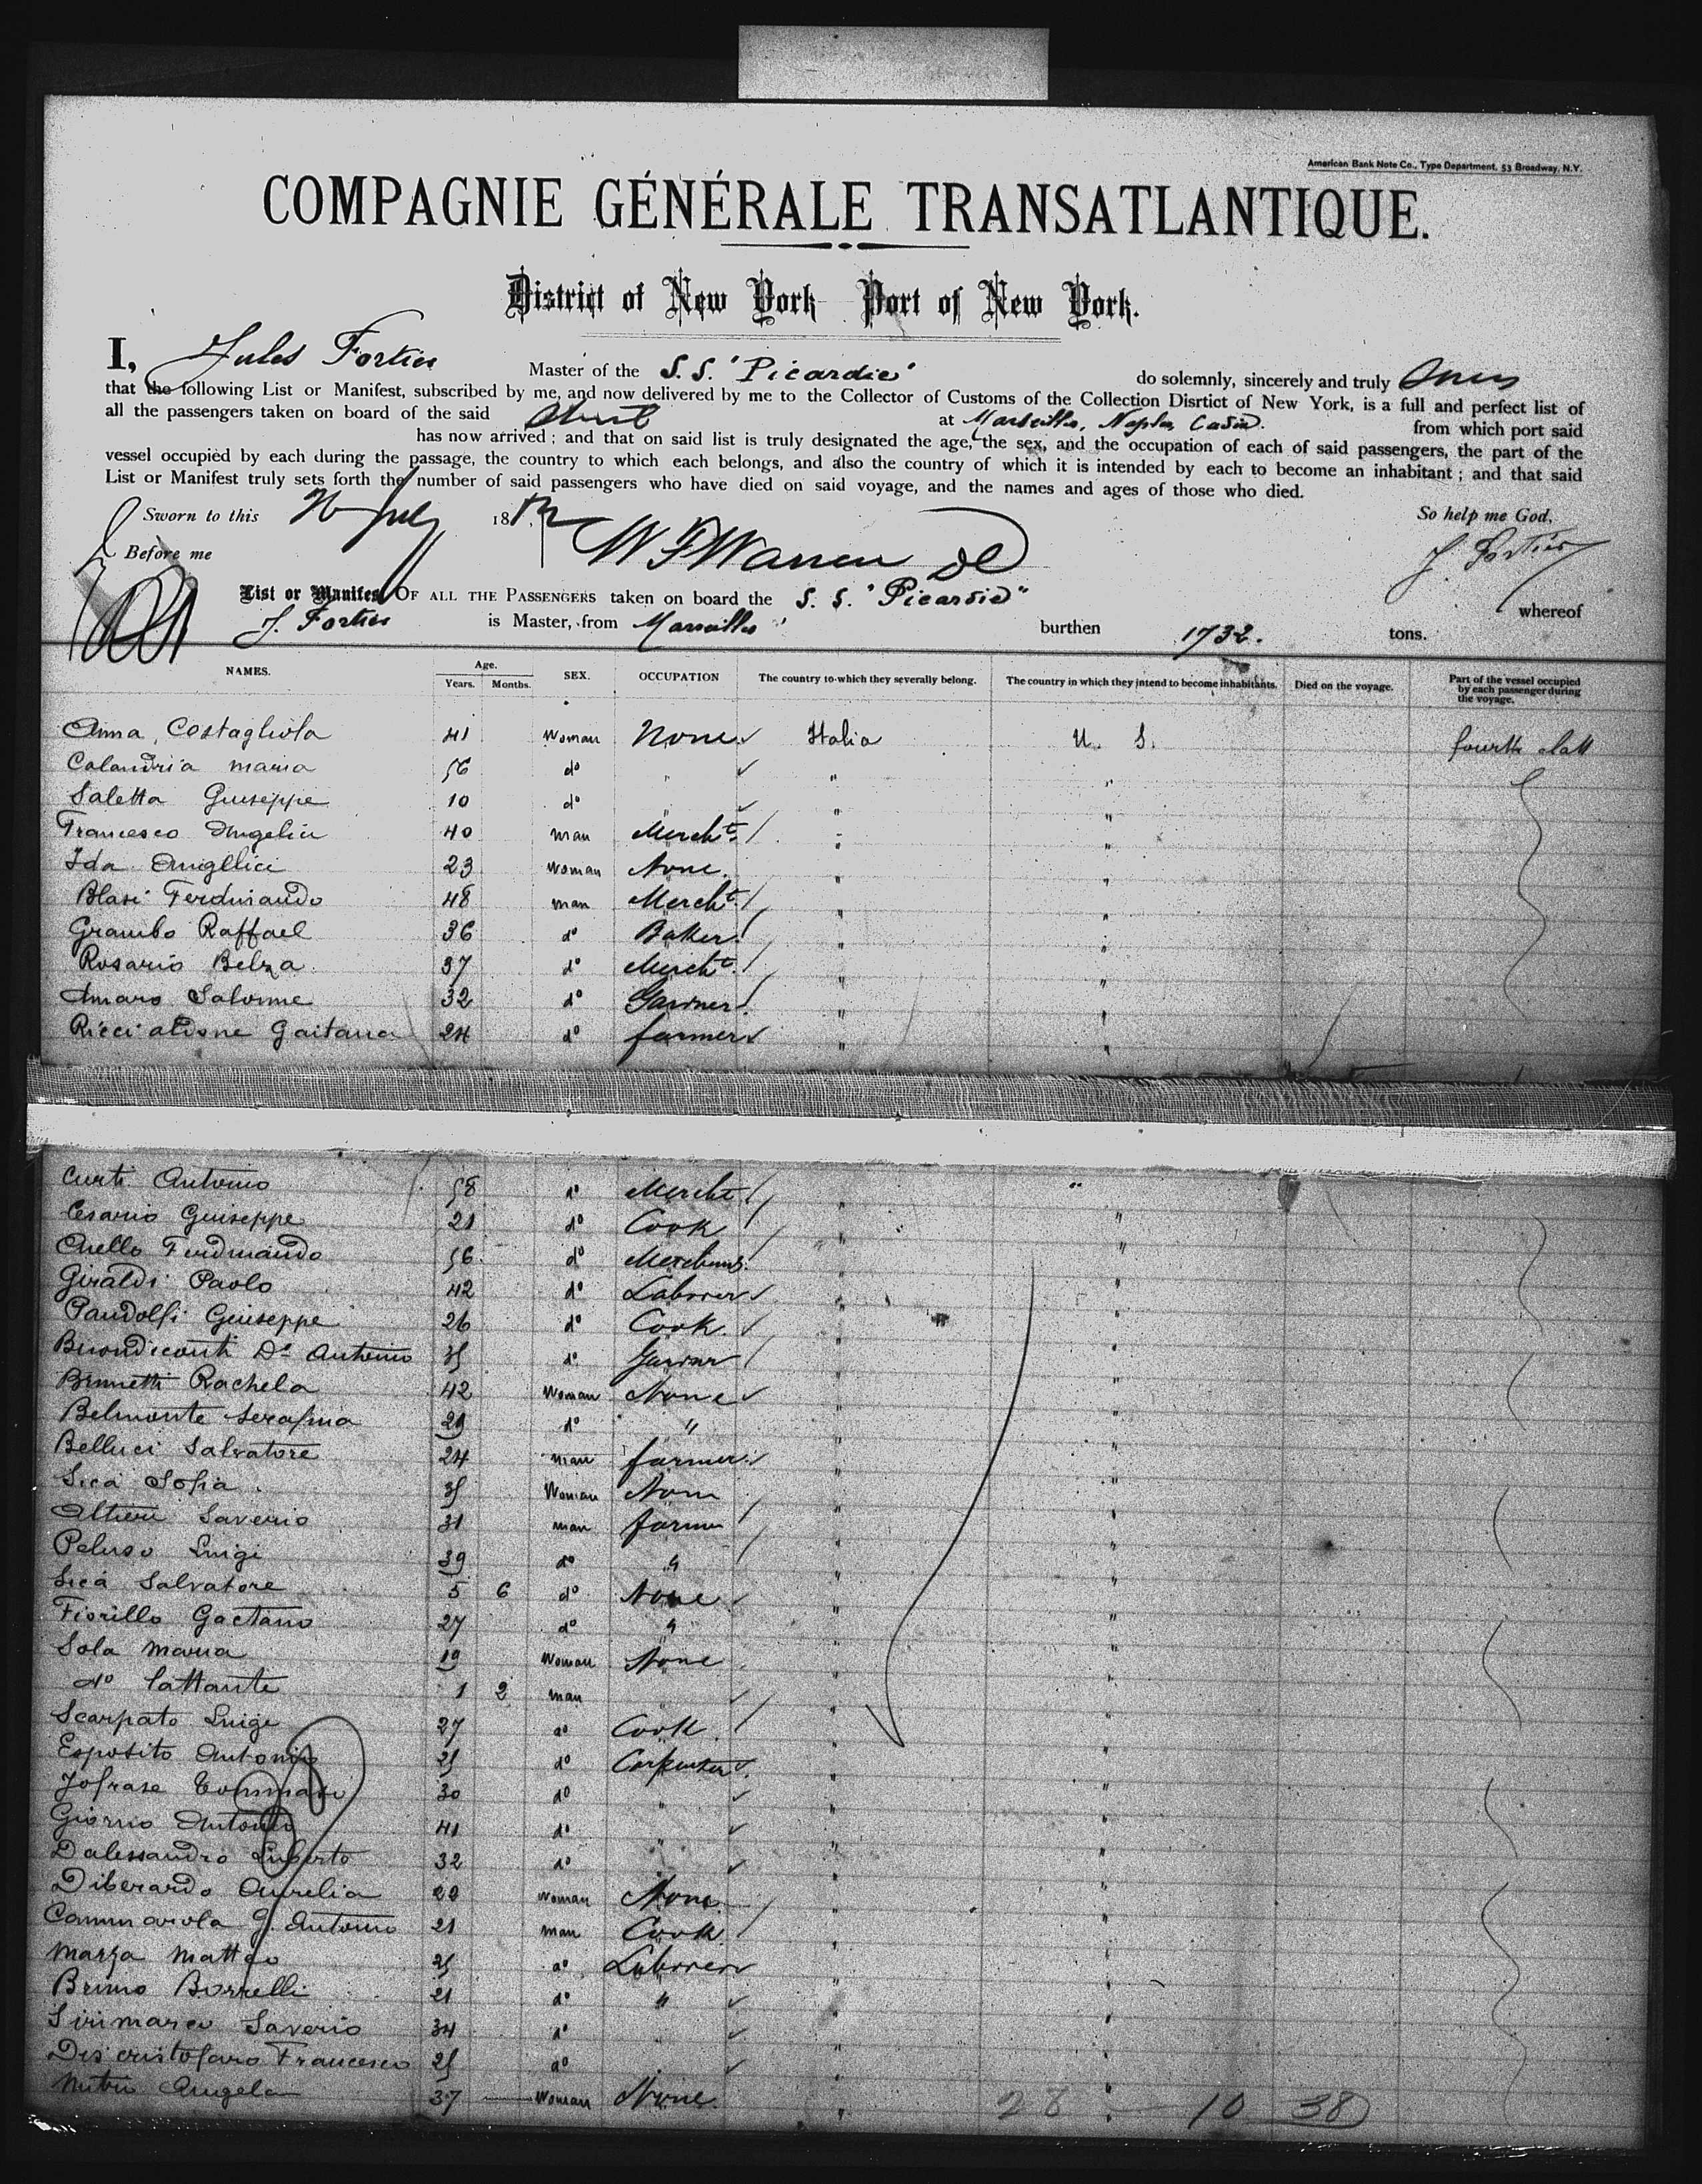 American Bank Note Co., Type Department, 53 Broadway, N.Y.
COMPAGNIE GÉNÉRALE TRANSATLANTIQUE.
District of New York Port of New York.
I, Jules Fortier Master of the S.S. "Picardie" do solemnly, sincerely and truly
that the following List or Manifest, subscribed by me, and now delivered by me to the Collector of Customs of the Collection Disrtict of New York, is a full and perfect list of
all the passengers taken on board of the said at Marseilles, Naples Cadiz. from which port said
has now arrived; and that on said list is truly designated the age, the sex, and the occupation of each of said passengers, the part of the
vessel occupied by each during the passage, the country to which each belongs, and also the country of which it is intended by each to become an inhabitant; and that said
List or Manifest truly sets forth the number of said passengers who have died on said voyage, and the names and ages of those who died.
Sworn to this July 18 So help me God,
Before me W F Warren J. Fortier
List or Manifest OF ALL THE PASSENGERS taken on board the S. S. "Picardie" whereof
J. Fortier is Master, from Marseilles burthen 1732. tons.
NAMES. Age. Years. Months. SEX. OCCUPATION The country to which they severally belong. The country in which they intend to become inhabitants. Died on the voyage. Part of the vessel occupied by each passenger during the voyage.
Anna Costagliola 41 Woman None Italia U. S. fourth class
Calandria Maria 56 do " " "
Saletta Guiseppe 10 do " " "
Francesco Angelici 40 man Mercht. " "
Ida Angellici 23 Woman None. " "
Blasi Ferdinando 48 man Mercht. " "
Grambo Raffael 36 do Baker " "
Rosario Belza 37 do Mercht. " "
Amaro Salvme 32 do Gardner " "
Ricciatione Gaitana 24 do farmer " "
Curti Antonio 58 do Mercht " "
Cesario Guiseppe 21 do Cook " "
Ferdinando 56 do " "
Giraldi Paolo 42 do Laborer " "
Pandolfi Guiseppe 26 do Cook. " "
Buondiconti Do Antonio 35 do " "
Brunetti Rachela 42 Woman None " "
Belmonte Serafina 29 do " " "
Belluci Salvatore 24 man farmer " "
Sica Sofia 35 Woman None " "
Altieri Saverio 31 man farmer " "
Peluso Luigi 39 do " " "
Sica Salvatore 5 6 do None " "
Fiorillo Gaetano 27 do " " "
Sola Maria 19 Woman None " "
do Lattante 1 2 man " "
Scarpato Luigi 27 do Cook " "
Esposito Antonio 25 do Carpenter " "
Jofrase Tommaso 30 do " " "
Giorno Antonio 41 do " " "
Dalessandro Luberto 32 do " "
Diberardo Aurelia 22 Woman None " "
Cammarola G. Antonio 21 man Cook " "
Marza Matteo 25 do Laborer " "
Bruno Borrelli 21 do " " "
Sirimarco Saverio 34 do " " "
Discristofaro Francesco 25 do " " "
Angela 37 Woman None " "
28 - 10 38